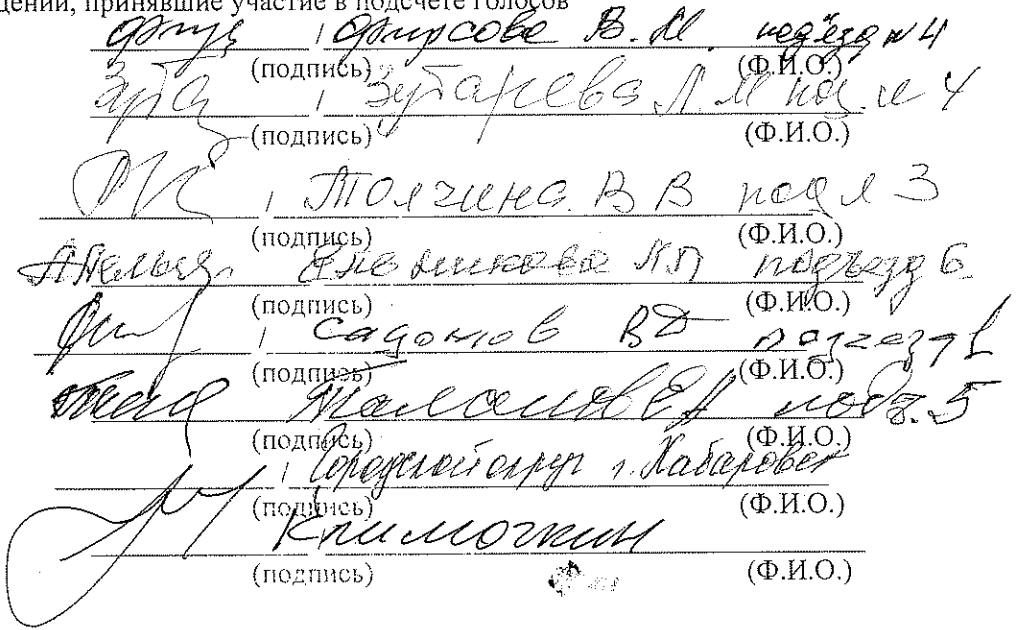 щений, принявшие участие в подсчете голосов
/ Фирсова В.М. подъезд №4
(подпись) (Ф.И.О.)
/ Зубарева Л.М под. №4
(подпись) (Ф.И.О.)
/ Толчина В В под 3
(подпись) (Ф.И.О.)
подъезд 6
(подпись) (Ф.И.О.)
/ Садомов ВД подъезд 1
(подпись) (Ф.И.О.)
подъ. 5
(подпись) (Ф.И.О.)
/ Городской округ г. Хабаровск
(подпись) (Ф.И.О.)
Климочкин
(подпись) (Ф.И.О.)